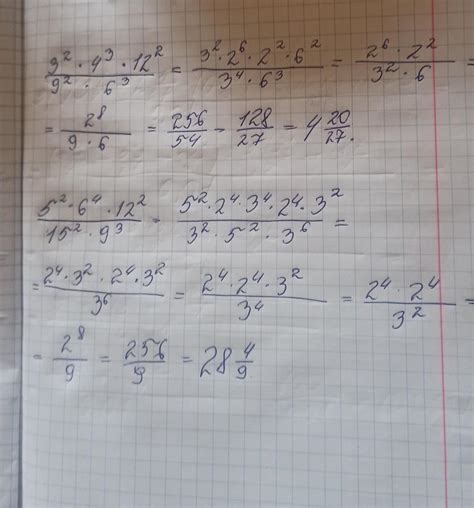 3² · 4³ · 12² / 9² · 6³ = 3² · 2⁶ · 2² · 6² / 3⁴ · 6³ = 2⁶ · 2² / 3² · 6 =
= 2⁸ / 9 · 6 = 256 / 54 = 128 / 27 = 4 20/27.
5² · 6⁴ · 12² / 15² · 9³ = 5² · 2⁴ · 3⁴ · 2⁴ · 3² / 3² · 5² · 3⁶ =
= 2⁴ · 3² · 2⁴ · 3² / 3⁶ = 2⁴ · 2⁴ · 3² / 3⁴ = 2⁴ · 2⁴ / 3² =
= 2⁸ / 9 = 256 / 9 = 28 4/9